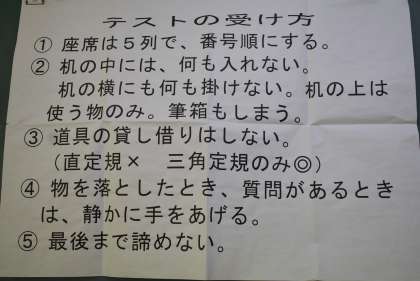 テストの受け方
① 座席は５列で、番号順にする。
② 机の中には、何も入れない。
机の横にも何も掛けない。机の上は
使う物のみ。筆箱もしまう。
③ 道具の貸し借りはしない。
（直定規×　三角定規のみ◎）
④ 物を落としたとき、質問があるとき
は、静かに手をあげる。
⑤ 最後まで諦めない。